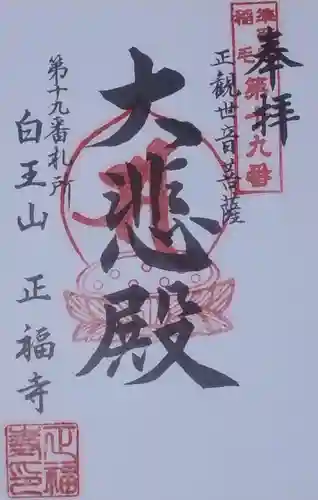 奉拝
準西
稲毛
第十九番
正観世音菩薩
大悲殿
第十九番札所
白王山 正福寺
正福寺印